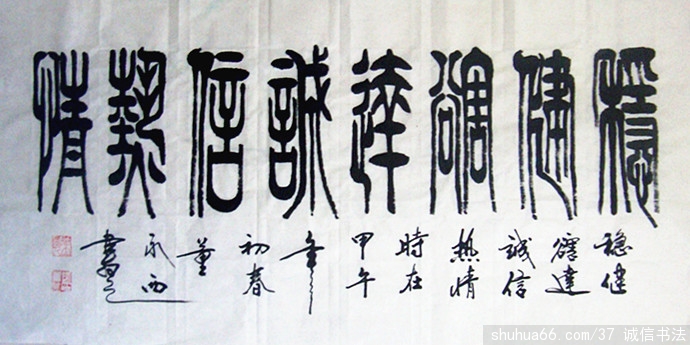 穩健豁達誠信熱情
稳健
豁達
誠信
热情
時在
甲午
年
初春
董
永西
書
shuhua66.com/37 诚信书法